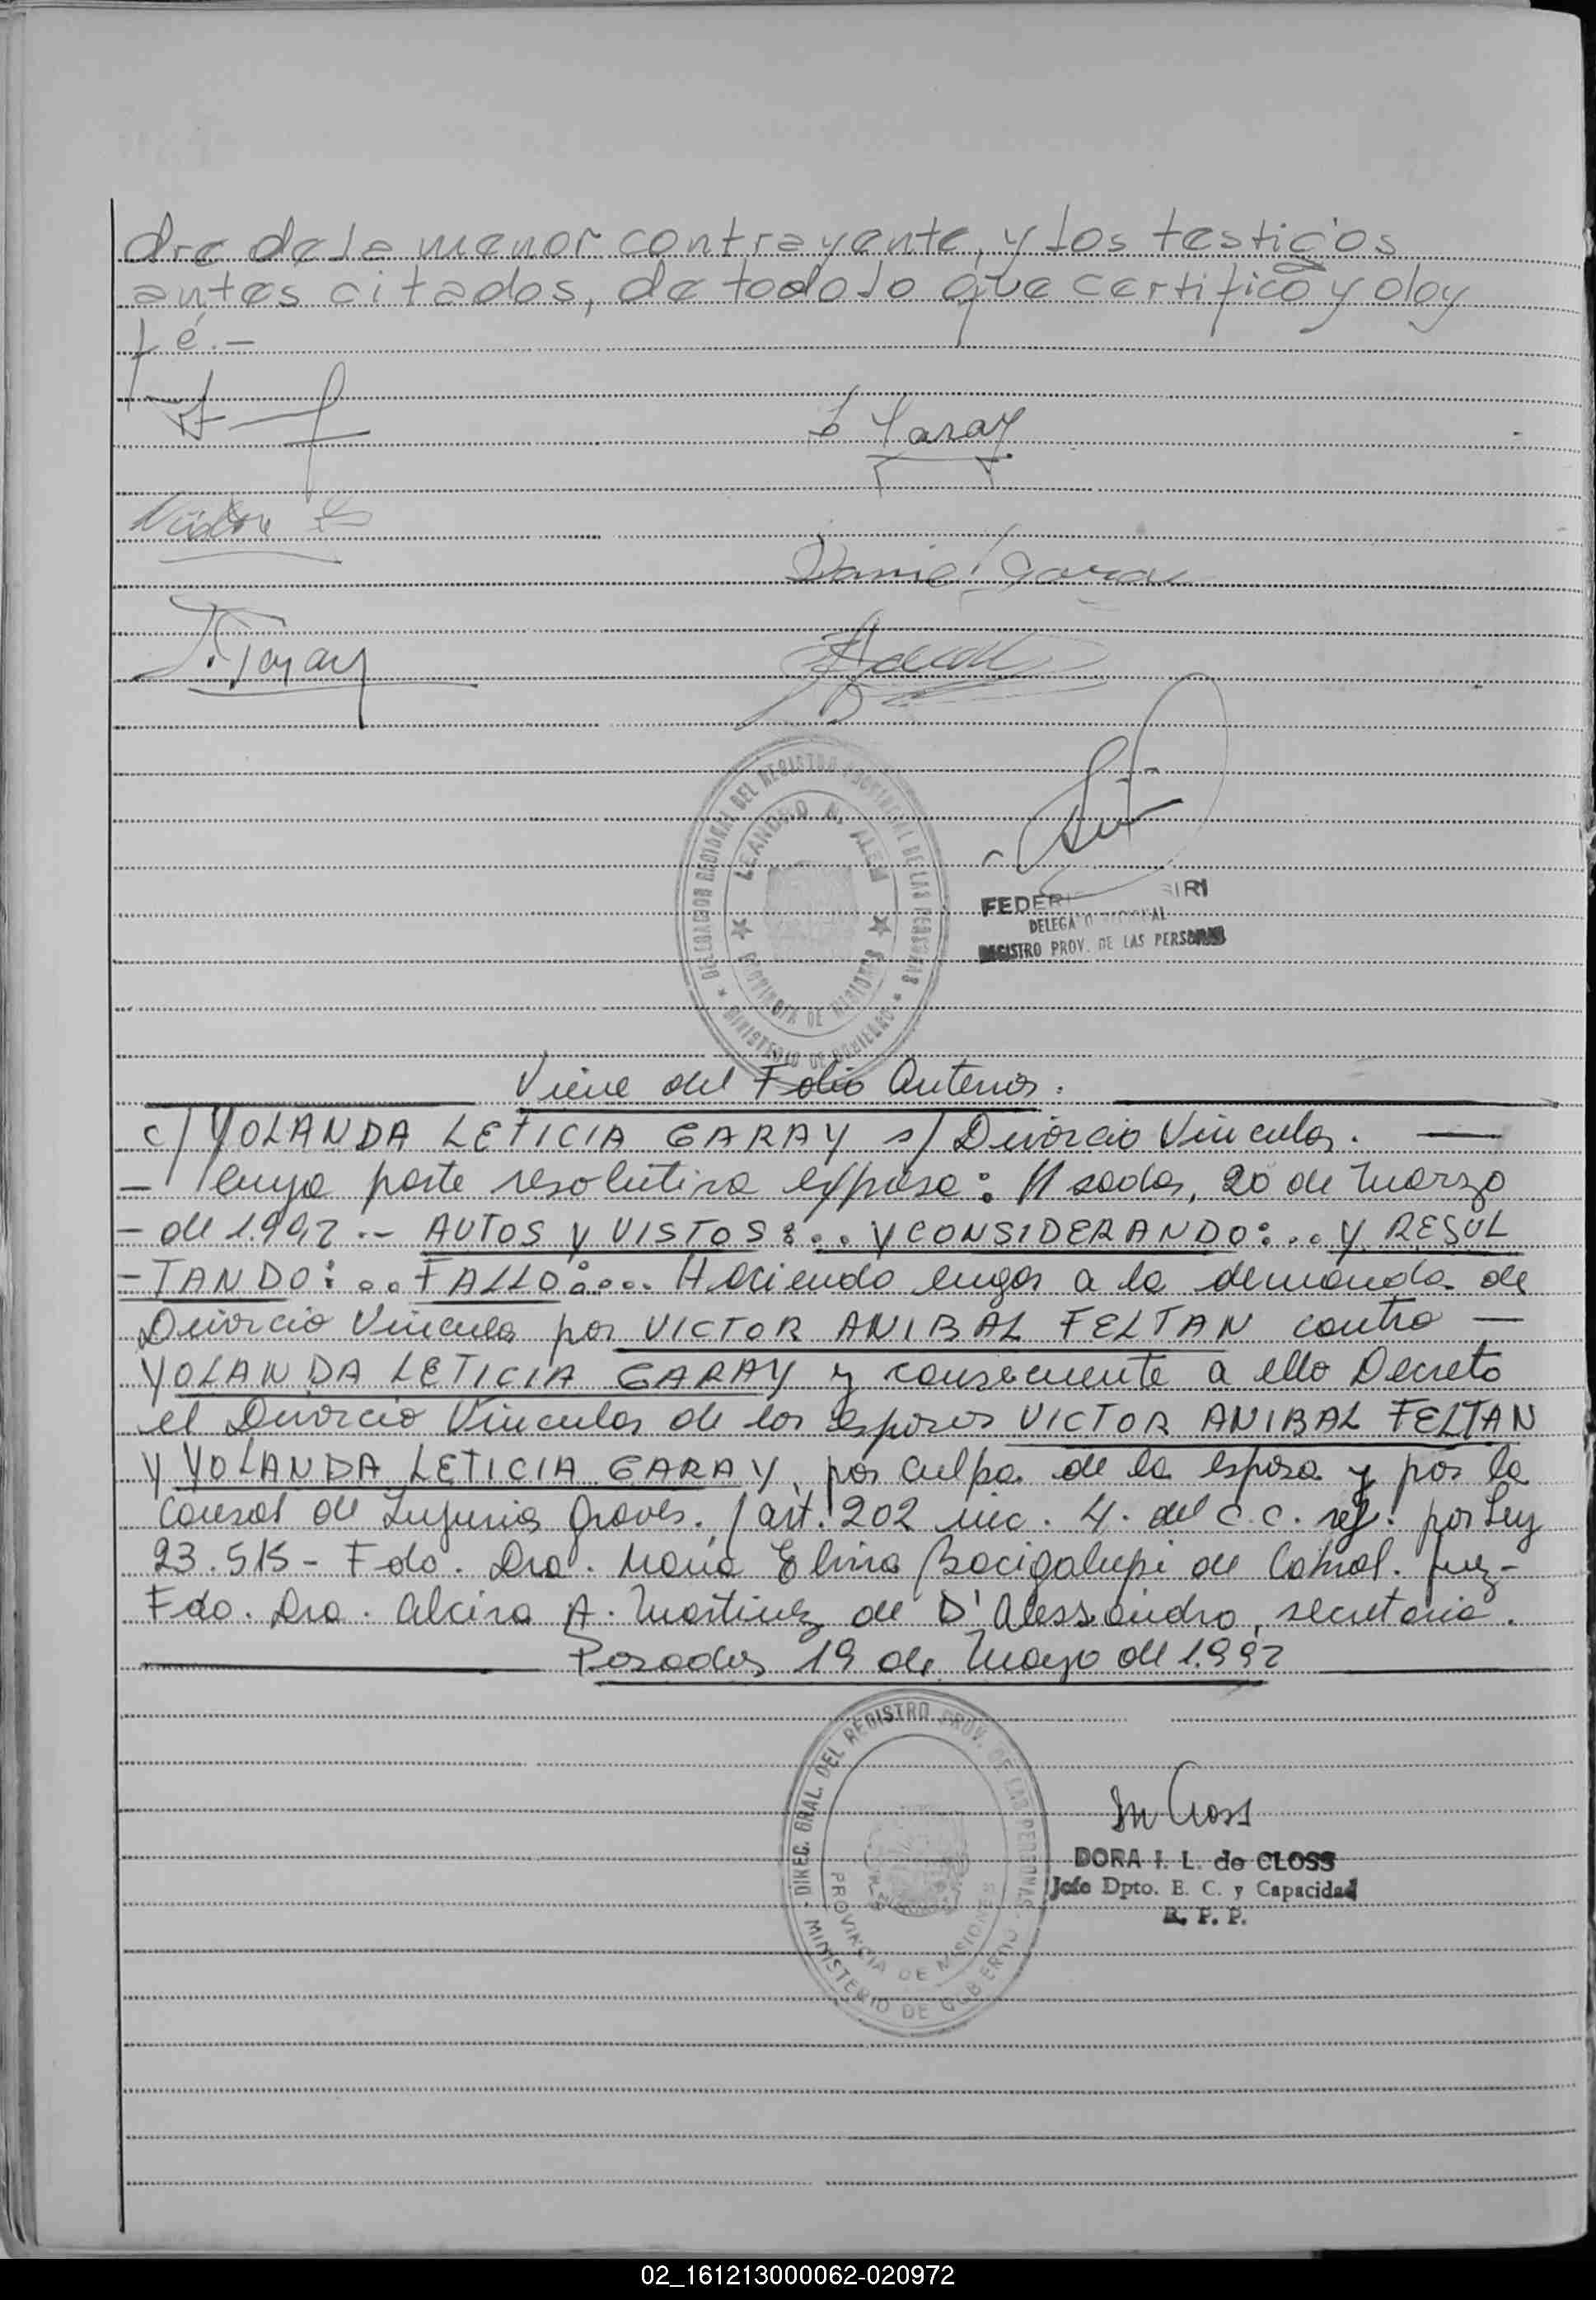 dre de la menor contrayente, y los testigos
antes citados, de todo lo que certifico y doy
fé.-
Garay
Daniel Garay
Garay
DELEGACION REGIONAL DEL REGISTRO PROVINCIAL DE LAS PERSONAS
LEANDRO N. ALEM
PROVINCIA DE MISIONES
MINISTERIO DE GOBIERNO
FEDER SIRI
DELEGADO REGIONAL
REGISTRO PROV. DE LAS PERSONAS
Viene del Folio Anterior.
c/ YOLANDA LETICIA GARAY s/ Divorcio Vincular. —
- cuya parte resolutiva expresa: Posadas, 20 de Marzo
- de 1.992.-- AUTOS Y VISTOS:.. Y CONSIDERANDO:... Y RESUL
-TANDO:... FALLO:.... Haciendo lugar a la demanda de
Divorcio Vincular por VICTOR ANIBAL FELTAN contra —
YOLANDA LETICIA GARAY y consecuente a ello Decreto
el Divorcio Vincular de los esposos VICTOR ANIBAL FELTAN
Y YOLANDA LETICIA GARAY, por culpa de la esposa y por la
Causal de Injurias Graves. / art. 202 inc. 4. del C.C. ref. por Ley
23.515- Fdo. Dra. María Elvira Bacigalupi de Cabral. Juez-
Fdo. Dra. Alcira A. Martinez de D'Alessandro, secretaria.
Posadas 19 de Mayo de 1.992
DIREC. GRAL. DEL REGISTRO PROV. DE LAS PERSONAS
PROVINCIA DE MISIONES
MINISTERIO DE GOBIERNO
Closs
DORA I. L. de CLOSS
Jefe Dpto. E. C. y Capacidad
R. P. P.
02_161213000062-020972